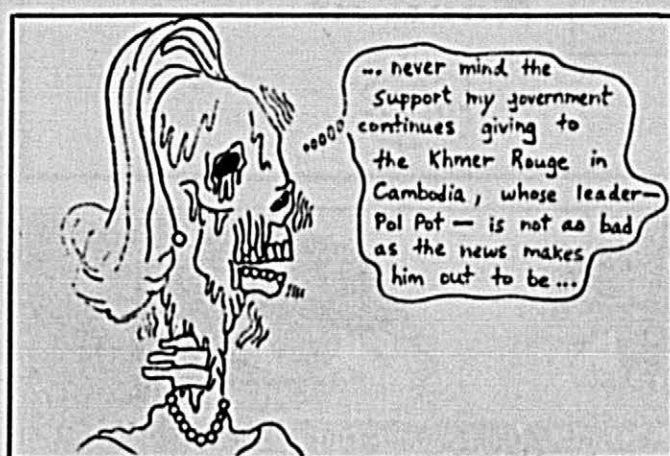 ... never mind the
support my government
continues giving to
the Khmer Rouge in
Cambodia, whose leader—
Pol Pot — is not as bad
as the news makes
him out to be...